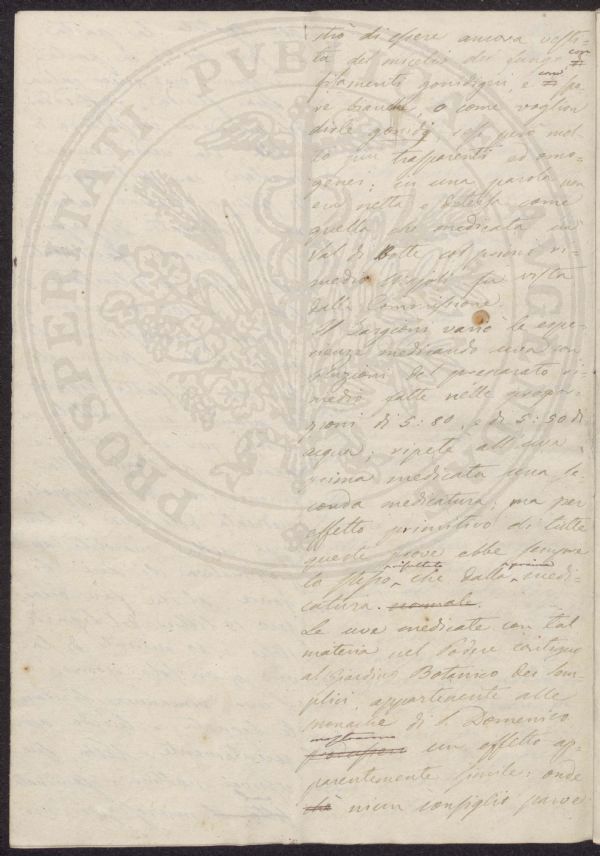 strò di essere ancora vesti-
ta del micelio del fungo con
filamenti gonidiferi, e con spo-
re bianche o come voglion
dirle gonidj
più trasparenti ed omo-
genei; in una parola non
era netta e detersa come
quella che medicata in
Val di Botte col primo ri-
medio fu vista
dalla Commissione.
Il Targioni variò le espe-
rienze medicando uva con
soluzioni del preparato ri-
medio fatte nelle propor-
zioni di 5:80, e di 5:50 di
acqua; ripetè all'uva
medicata una se-
conda medicatura; ma per
effetto primitivo di tutte
queste prove ebbe sempre
lo stesso resultato che dalla prima medi-
catura. normale.
Le uve medicate con tal
materia nel Podere contiguo
al Giardino Botanico dei Sem-
plici, appartenente alle
monache di S. Domenico
mostrarono
produssero un effetto ap-
parentemente simile; onde
chè niun consiglio parve
PROSPERITATI PUBLICAE